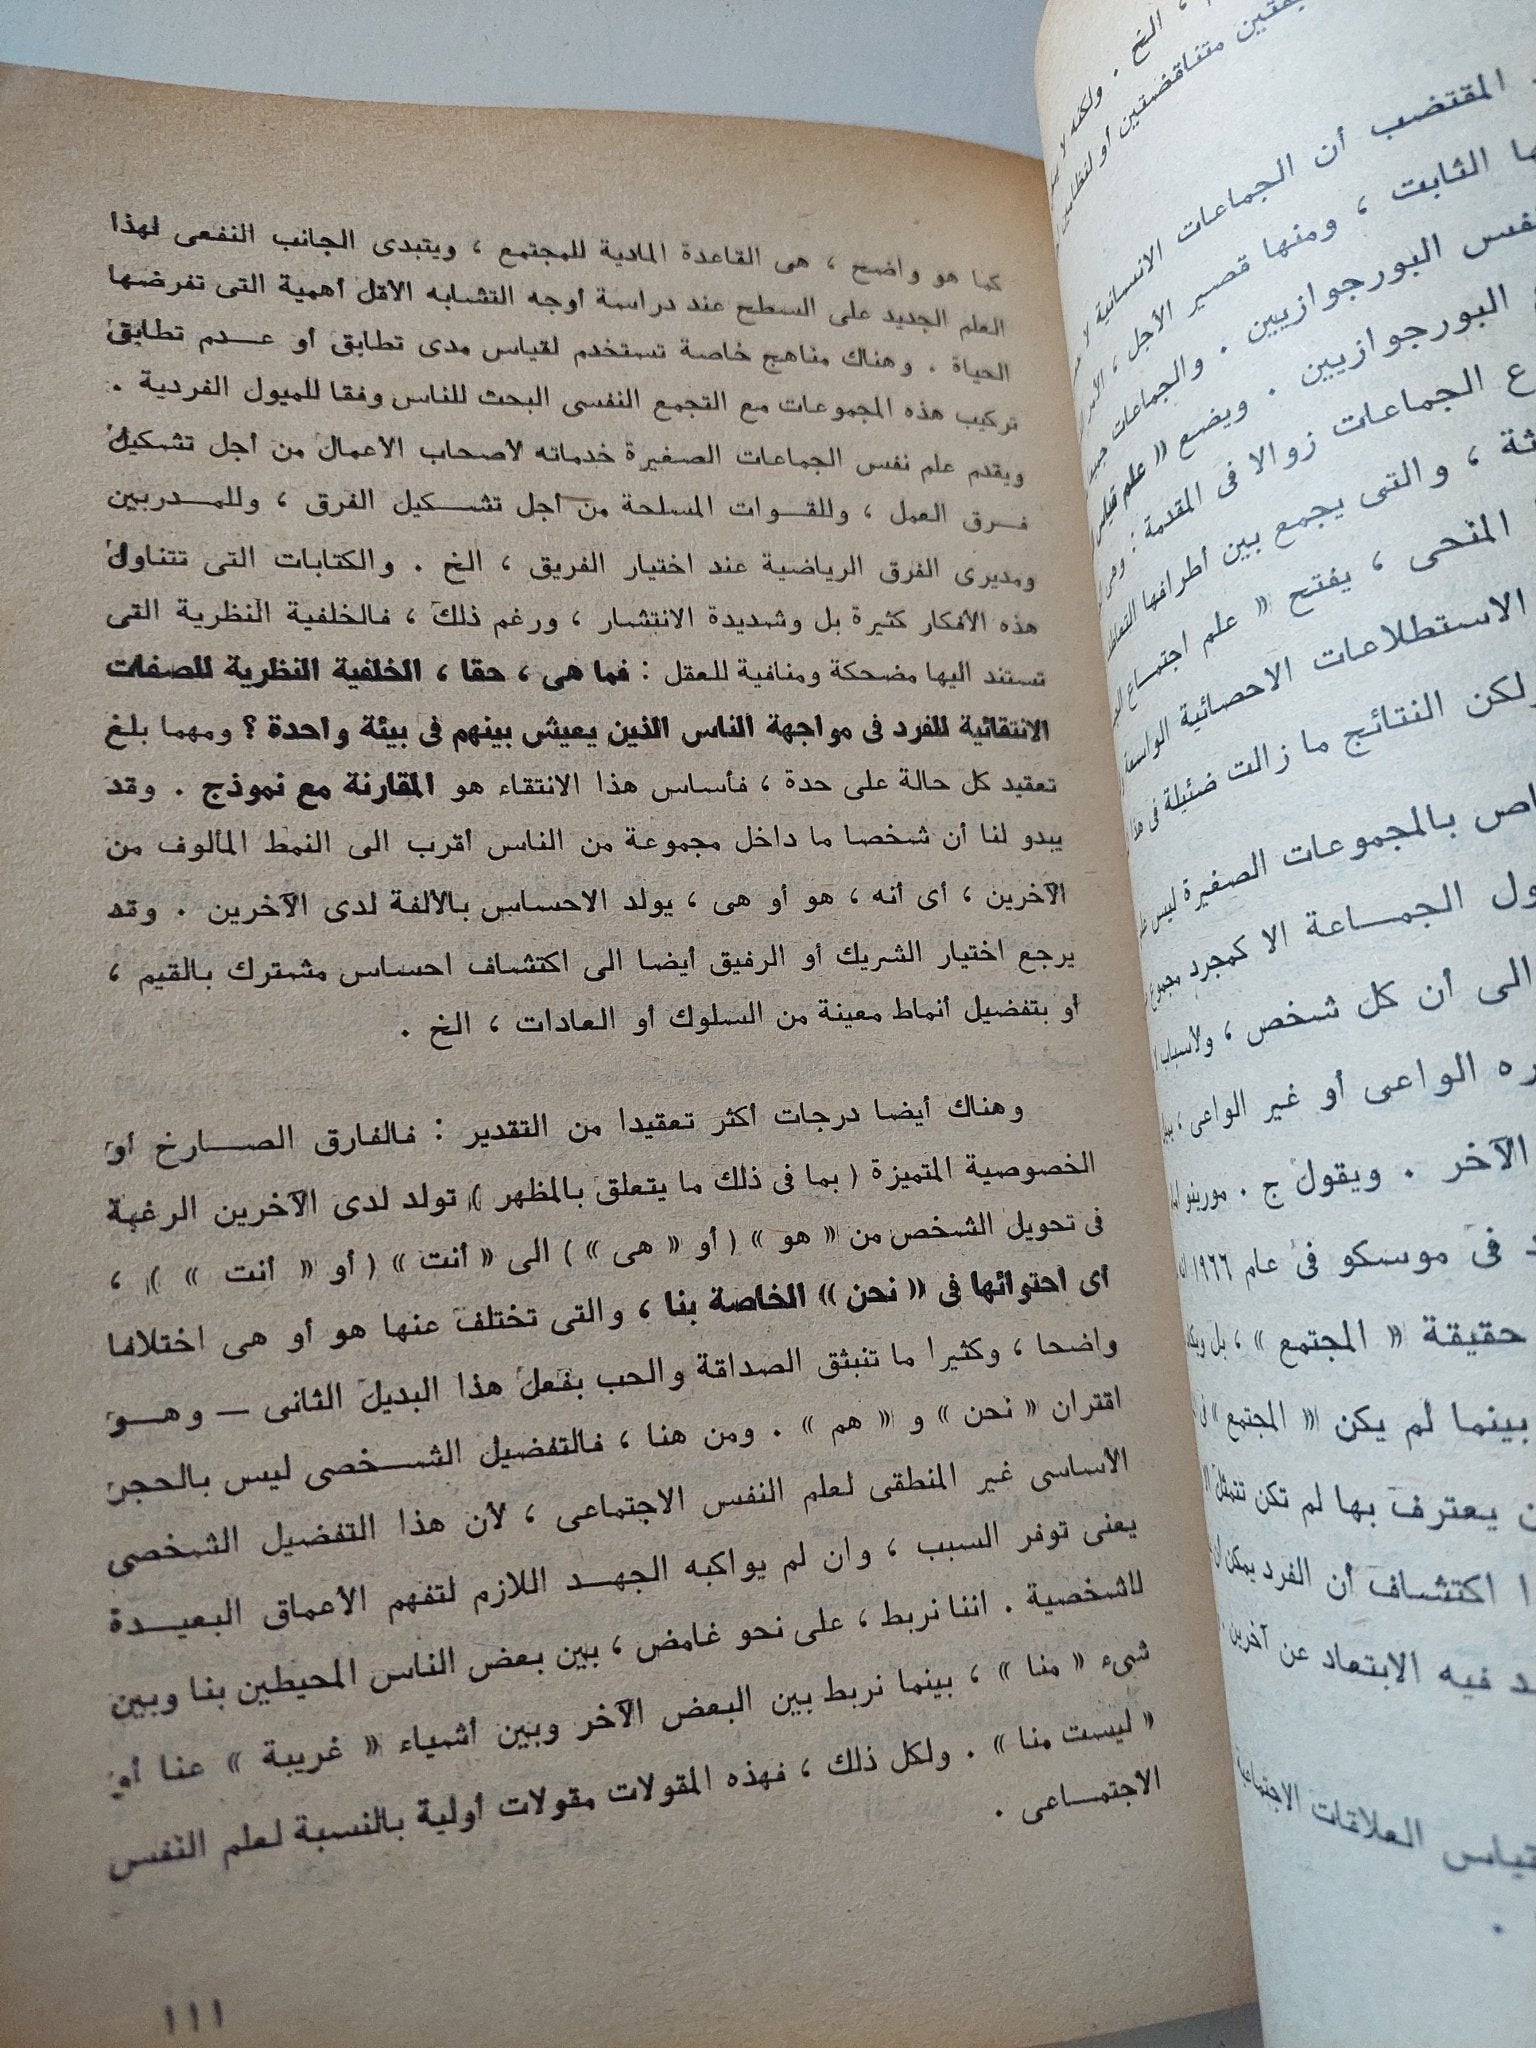 كما هو واضح ، هى القاعدة المادية للمجتمع ، ويتبدى الجانب النفعى لهذا
العلم الجديد على السطح عند دراسة أوجه التشابه الأقل أهمية التى تفرضها
الحياة . وهناك مناهج خاصة تستخدم لقياس مدى تطابق أو عدم تطابق
تركيب هذه المجموعات مع التجمع النفسى البحت للناس وفقا للميول الفردية .
ويقدم علم نفس الجماعات الصغيرة خدماته لأصحاب الاعمال من أجل تشكيل
فرق العمل ، وللقوات المسلحة من أجل تشكيل الفرق ، وللمدربين
ومديرى الفرق الرياضية عند اختيار الفريق ، الخ . والكتابات التى تتناول
هذه الأفكار كثيرة بل وشديدة الانتشار ، ورغم ذلك ، فالخلفية النظرية التى
تستند اليها مضحكة ومنافية للعقل : فما هى ، حقا ، الخلفية النظرية للصفات
الانتقائية للفرد فى مواجهة الناس الذين يعيش بينهم فى بيئة واحدة ؟ ومهما بلغ
تعقيد كل حالة على حدة ، فأساس هذا الانتقاء هو المقارنة مع نموذج . وقد
يبدو لنا أن شخصا ما داخل مجموعة من الناس أقرب الى النمط المألوف من
الآخرين ، أى أنه ، هو أو هى ، يولد الاحساس بالألفة لدى الآخرين . وقد
يرجع اختيار الشريك أو الرفيق أيضا الى اكتشاف احساس مشترك بالقيم ،
أو بتفضيل أنماط معينة من السلوك أو العادات ، الخ .
وهناك أيضا درجات أكثر تعقيدا من التقدير : فالفارق الصارخ أو
الخصوصية المتميزة ( بما فى ذلك ما يتعلق بالمظهر ) تولد لدى الآخرين الرغبة
فى تحويل الشخص من « هو » ( أو « هى » ) الى « أنت » ( أو « أنت » ) ،
أى احتوائها فى « نحن » الخاصة بنا ، والتى تختلف عنها هو أو هى اختلافا
واضحا ، وكثيرا ما تنبثق الصداقة والحب بفعل هذا البديل الثانى — وهو
اقتران « نحن » و « هم » . ومن هنا ، فالتفضيل الشخصى ليس بالحجر
الأساسى غير المنطقى لعلم النفس الاجتماعى ، لأن هذا التفضيل الشخصى
يعنى توفر السبب ، وان لم يواكبه الجهد اللازم لتفهم الأعماق البعيدة
للشخصية . اننا نربط ، على نحو غامض ، بين بعض الناس المحيطين بنا وبين
شىء « منا » ، بينما نربط بين البعض الآخر وبين أشياء « غريبة » عنا أو
« ليست منا » . ولكل ذلك ، فهذه المقولات مقولات أولية بالنسبة لعلم النفس
الاجتماعى .
١١١
الخ . ولكنه لا
متناقضتين أو لنظامين
المقتضب أن الجماعات الانسانية لا
الثابت ، ومنها قصير الأجل ،
البورجوازيين . والجماعات
البورجوازيين . ويضع « علم
الجماعات زوالا فى المقدمة : وهى
، والتى يجمع بين أطرافها
المنحى ، يفتح « علم اجتماع
الاستطلاعات الاحصائية
ولكن النتائج ما زالت ضئيلة فى
بالمجموعات الصغيرة ليس
الجماعة الا كمجرد
الى أن كل شخص ،
الواعى أو غير الواعى ،
الآخر . ويقول ج . مورينو
فى موسكو فى عام ١٩٦٦
حقيقة « المجتمع » ، بل
بينما لم يكن « المجتمع »
يعترف بها لم تكن تتمثل
اكتشاف أن الفرد يمكن
فيه الابتعاد عن آخرين .
العلاقات الاجتماعية
.